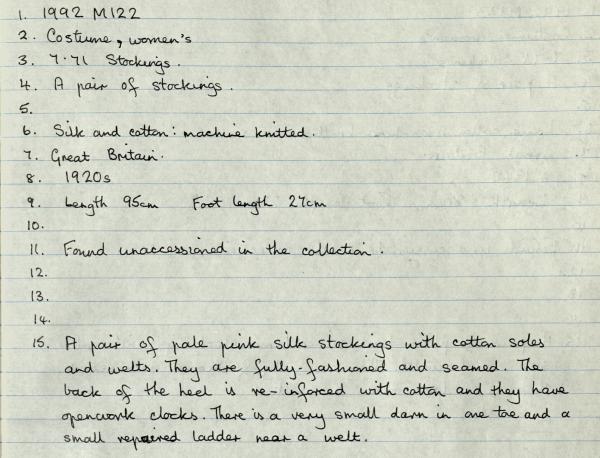 1. 1992 M122
2. Costume, women's
3. 7.71 Stockings.
4. A pair of stockings.
5.
6. Silk and cotton: machine knitted.
7. Great Britain.
8. 1920s
9. Length 95cm Foot length 27cm
10.
11. Found unaccessioned in the collection.
12.
13.
14.
15. A pair of pale pink silk stockings with cotton soles
and welts. They are fully-fashioned and seamed. The
back of the heel is re-inforced with cotton and they have
openwork clocks. There is a very small darn in one toe and a
small repaired ladder near a welt.